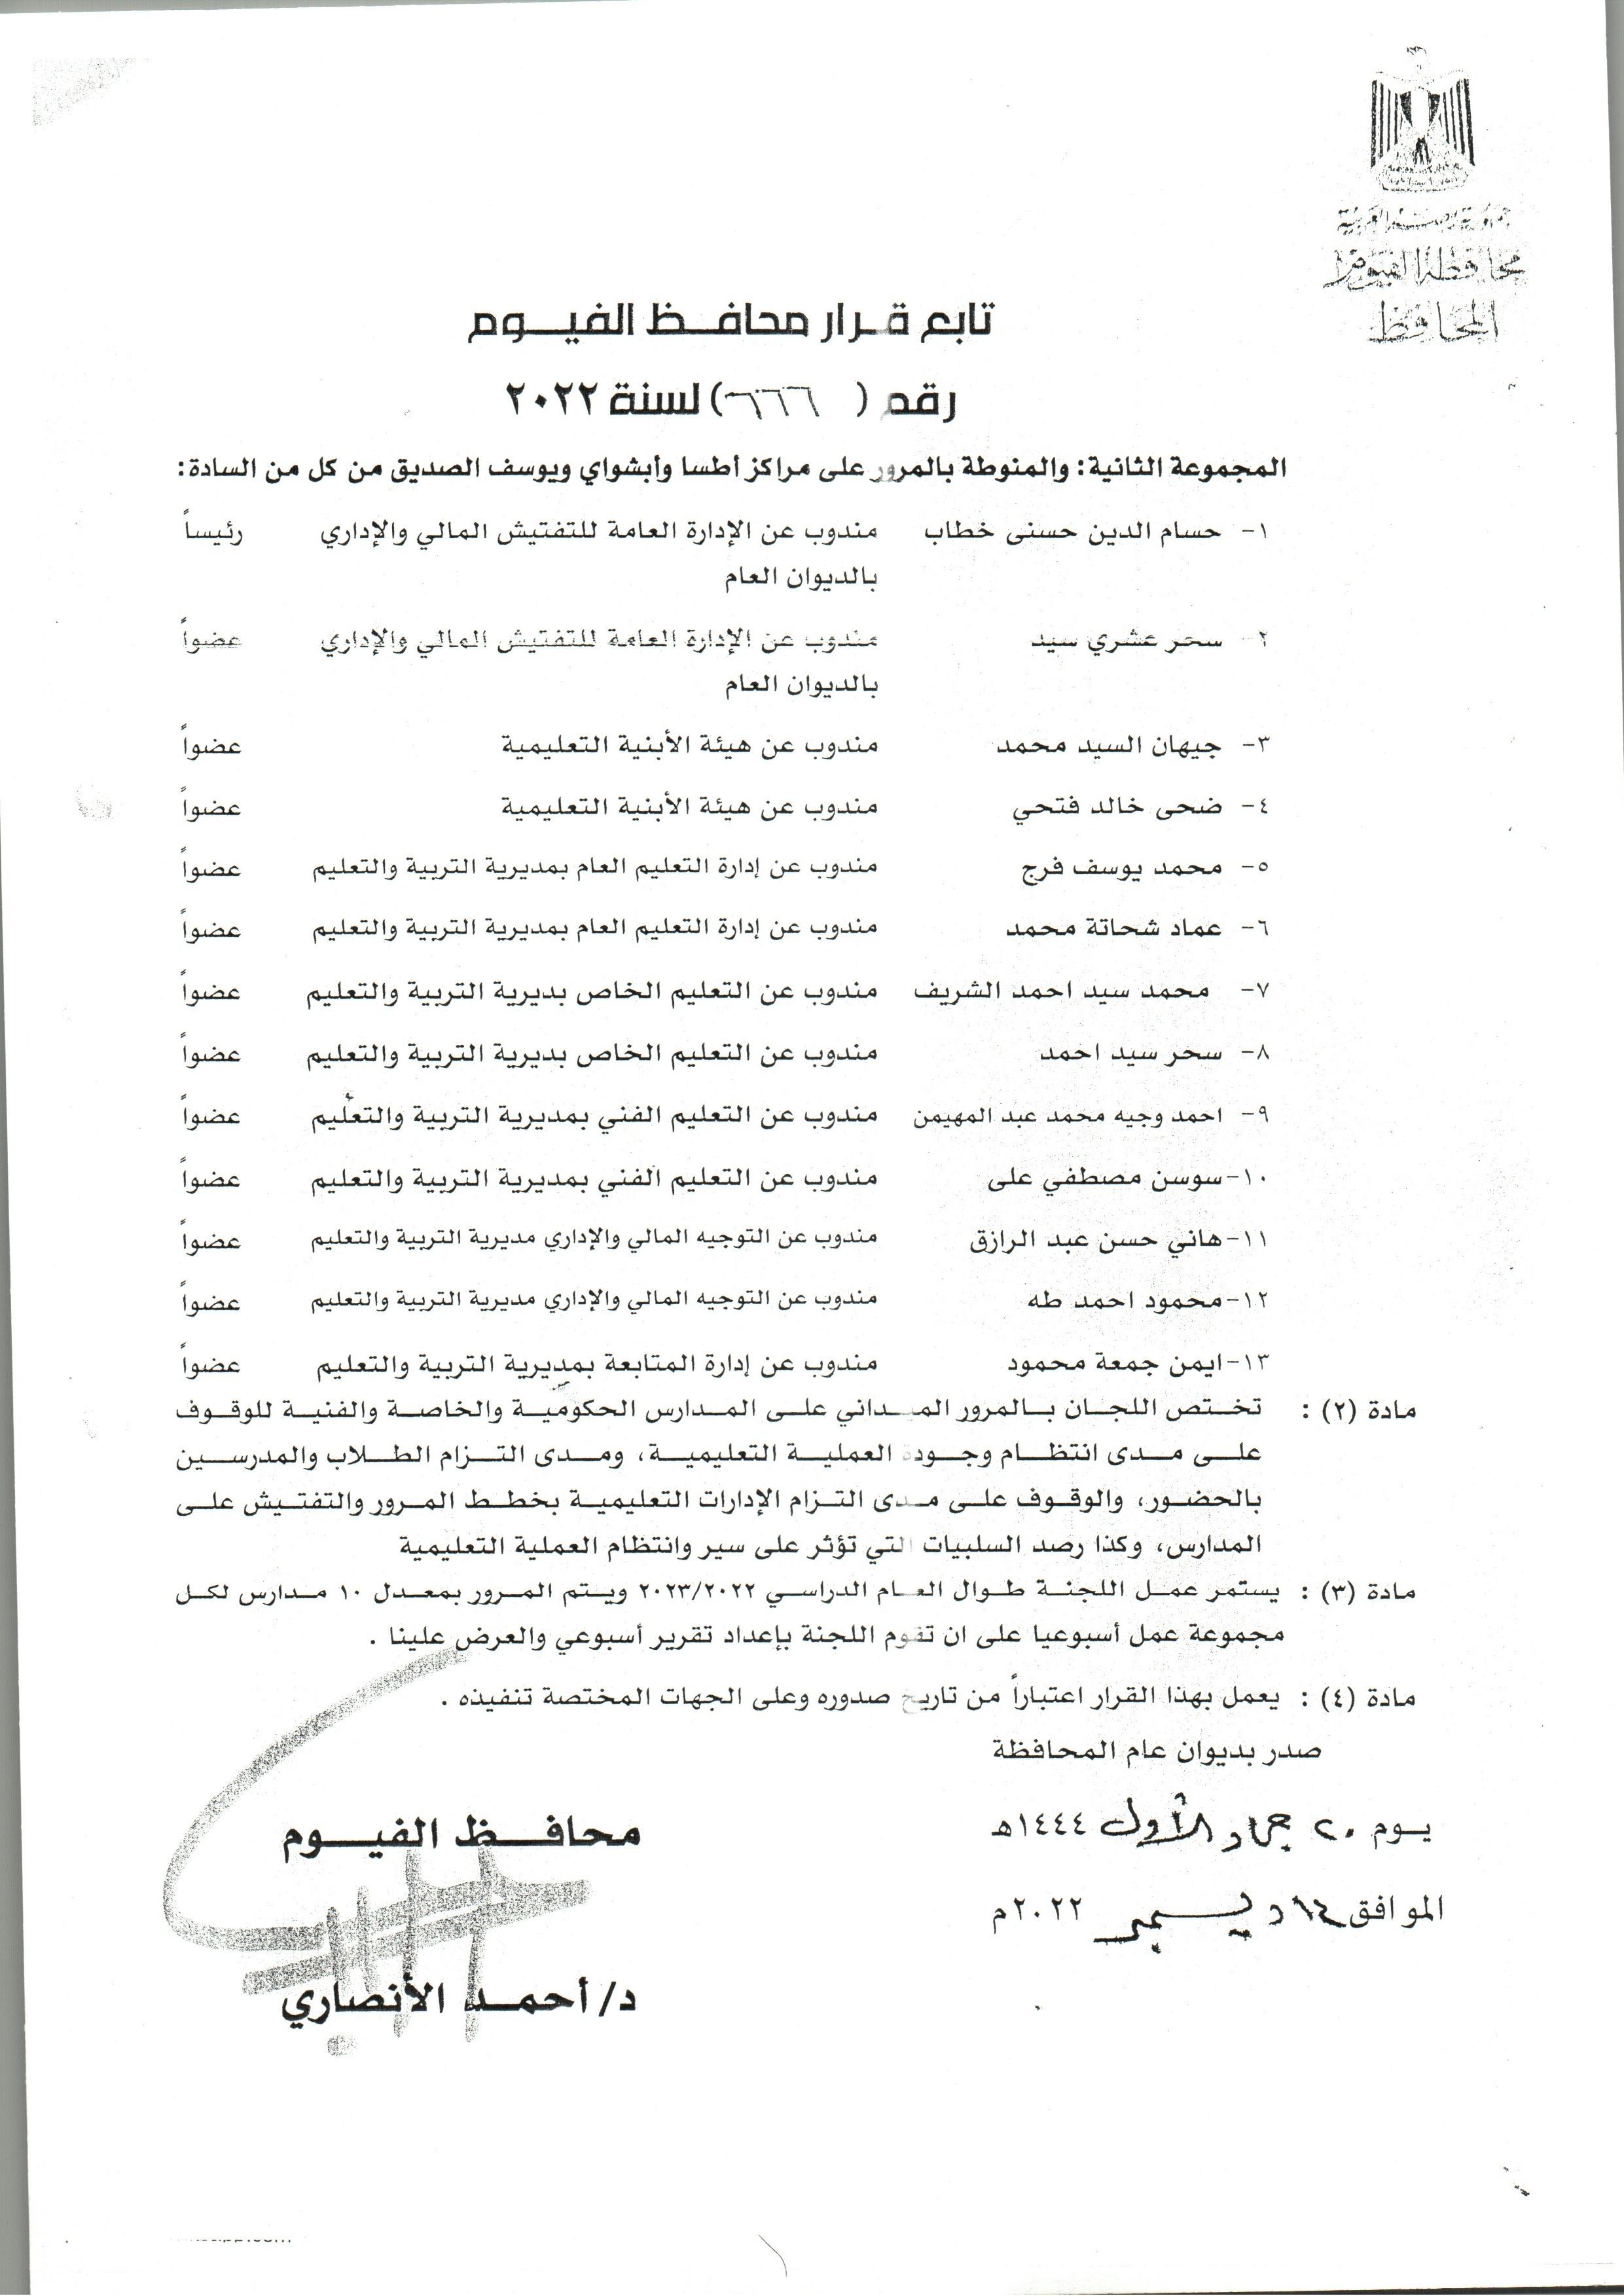 جمهورية مصر العربية
محافظة الفيوم
المحافظ
تابع قرار محافظ الفيوم
رقم ( ) لسنة ٢٠٢٢
المجموعة الثانية: والمنوطة بالمرور على مراكز أطسا وأبشواي ويوسف الصديق من كل من السادة:
١- حسام الدين حسنى خطاب مندوب عن الإدارة العامة للتفتيش المالي والإداري رئيساً
بالديوان العام
٢- سحر عشري سيد مندوب عن الإدارة العامة للتفتيش المالي والإداري عضواً
بالديوان العام
٣- جيهان السيد محمد مندوب عن هيئة الأبنية التعليمية عضواً
٤- ضحى خالد فتحي مندوب عن هيئة الأبنية التعليمية عضواً
٥- محمد يوسف فرج مندوب عن إدارة التعليم العام بمديرية التربية والتعليم عضواً
٦- عماد شحاتة محمد مندوب عن إدارة التعليم العام بمديرية التربية والتعليم عضواً
٧- محمد سيد احمد الشريف مندوب عن التعليم الخاص بديرية التربية والتعليم عضواً
٨- سحر سيد احمد مندوب عن التعليم الخاص بديرية التربية والتعليم عضواً
٩- احمد وجيه محمد عبد المهيمن مندوب عن التعليم الفني بمديرية التربية والتعليم عضواً
١٠-سوسن مصطفي على مندوب عن التعليم الفني بمديرية التربية والتعليم عضواً
١١-هاني حسن عبد الرازق مندوب عن التوجيه المالي والإداري مديرية التربية والتعليم عضواً
١٢-محمود احمد طه مندوب عن التوجيه المالي والإداري مديرية التربية والتعليم عضواً
١٣-ايمن جمعة محمود مندوب عن إدارة المتابعة بمديرية التربية والتعليم عضواً
مادة (٢) : تختص اللجان بالمرور الميداني على المدارس الحكومية والخاصة والفنية للوقوف
على مدى انتظام وجودة العملية التعليمية، ومدى التزام الطلاب والمدرسين
بالحضور، والوقوف على مدى التزام الإدارات التعليمية بخطط المرور والتفتيش على
المدارس، وكذا رصد السلبيات التي تؤثر على سير وانتظام العملية التعليمية
مادة (٣) : يستمر عمل اللجنة طوال العام الدراسي ٢٠٢٣/٢٠٢٢ ويتم المرور بمعدل ١٠ مدارس لكل
مجموعة عمل أسبوعيا على ان تقوم اللجنة بإعداد تقرير أسبوعي والعرض علينا .
مادة (٤) : يعمل بهذا القرار اعتباراً من تاريخ صدوره وعلى الجهات المختصة تنفيذه .
صدر بديوان عام المحافظة
يوم ٢٠ جماد الأول ١٤٤٤هـ
الموافق ١٤ ديسمبر ٢٠٢٢م
محافظ الفيوم
د/ أحمد الأنصاري